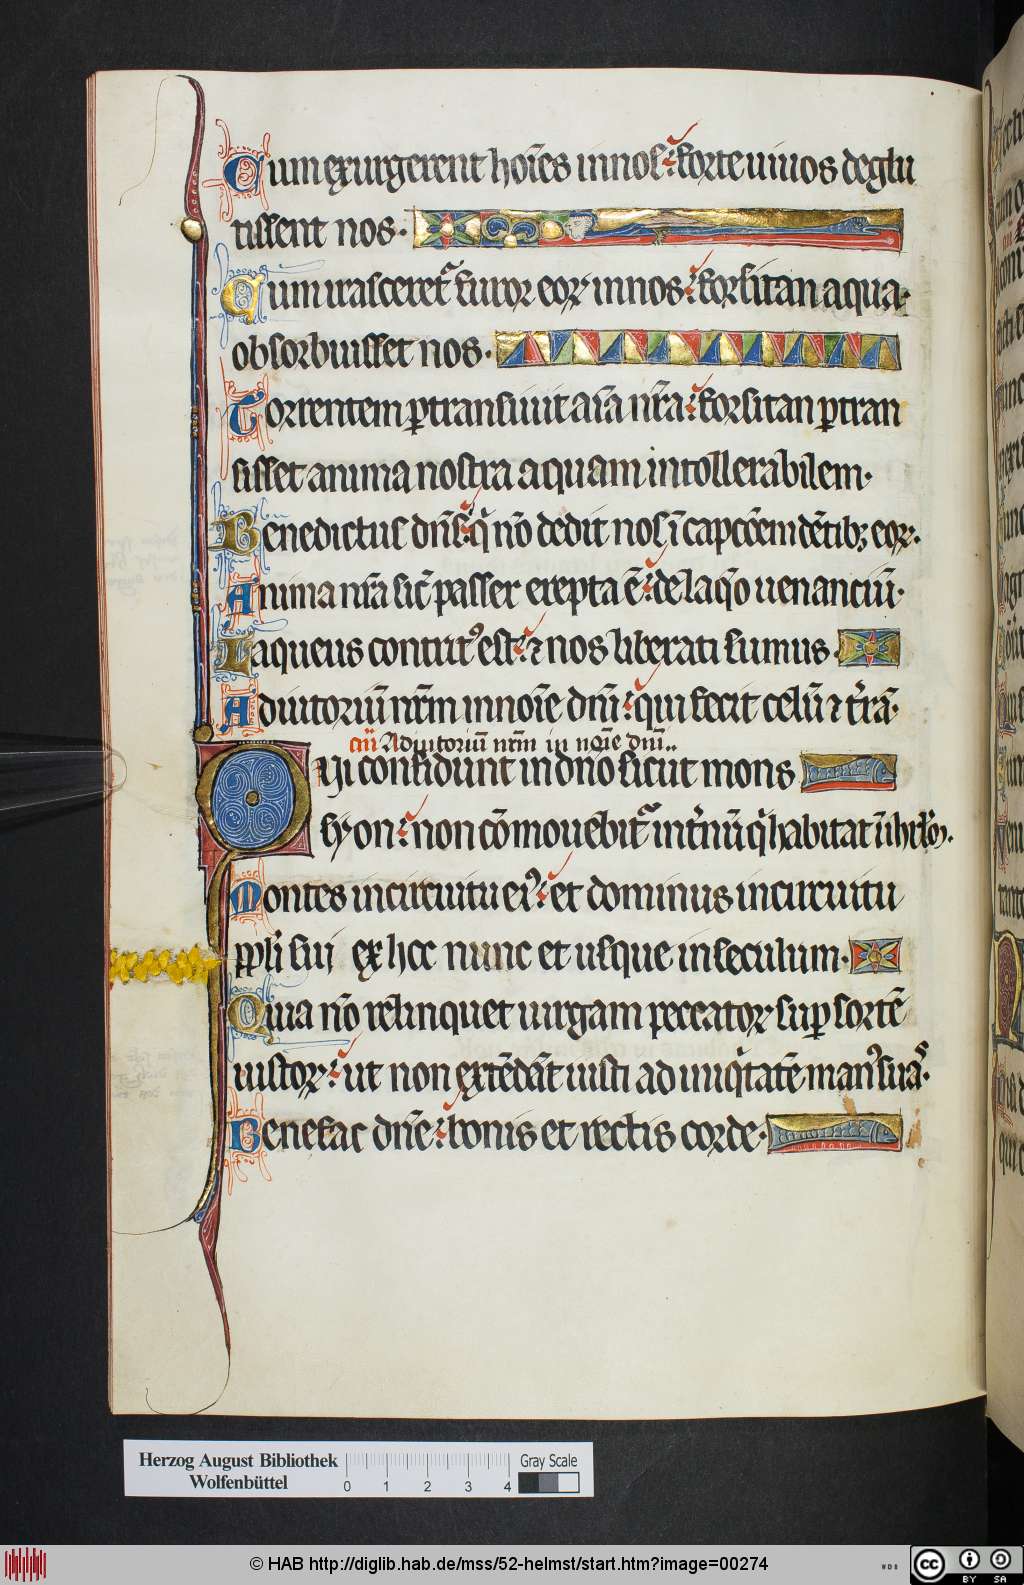 Cum exurgerent hoīes in nos: forte uiuos deglu
tissent nos.
Cum irasceret᷑ furor eoꝝ in nos: forsitan aqua
obsorbuisset nos.
Torrentem ꝑtransiuit aīa nr̄a: forsitan ꝑtran
sisset anima nostra aquam intollerabilem.
Benedictus dn̄s: q̄ nō dedit nos ī capc̄ōem dētibꝫ eoꝝ.
Anima nr̄a sic̄ passer erepta ē: de laq̄o uenanciū.
Laqueus contritꝰ est: ⁊ nos liberati sumus.
Adiutoriū nr̄m in noīe dn̄i: qui fecit celū ⁊ t̄rā.
Adiutoriū nr̄m in noīe dn̄i..
Qui confidunt in dn̄o sicut mons
syon: non cōmouebit᷑ in et̄nū q̄ habitat ī ihrl̄m.
Montes in circuitu eiꝰ: et dominus in circuitu
ppl̄i sui ex hoc nunc et usque in seculum.
Quia nō relinquet uirgam peccatoꝝ suꝑ sortē
iustoꝝ: ut non extēdāt iusti ad iniq̄tatē manꝰ suas.
Benefac dn̄e: bonis et rectis corde.
Herzog August Bibliothek
Wolfenbüttel
0 1 2 3 4
Gray Scale
© HAB http://diglib.hab.de/mss/52-helmst/start.htm?image=00274
WDB
cc BY SA